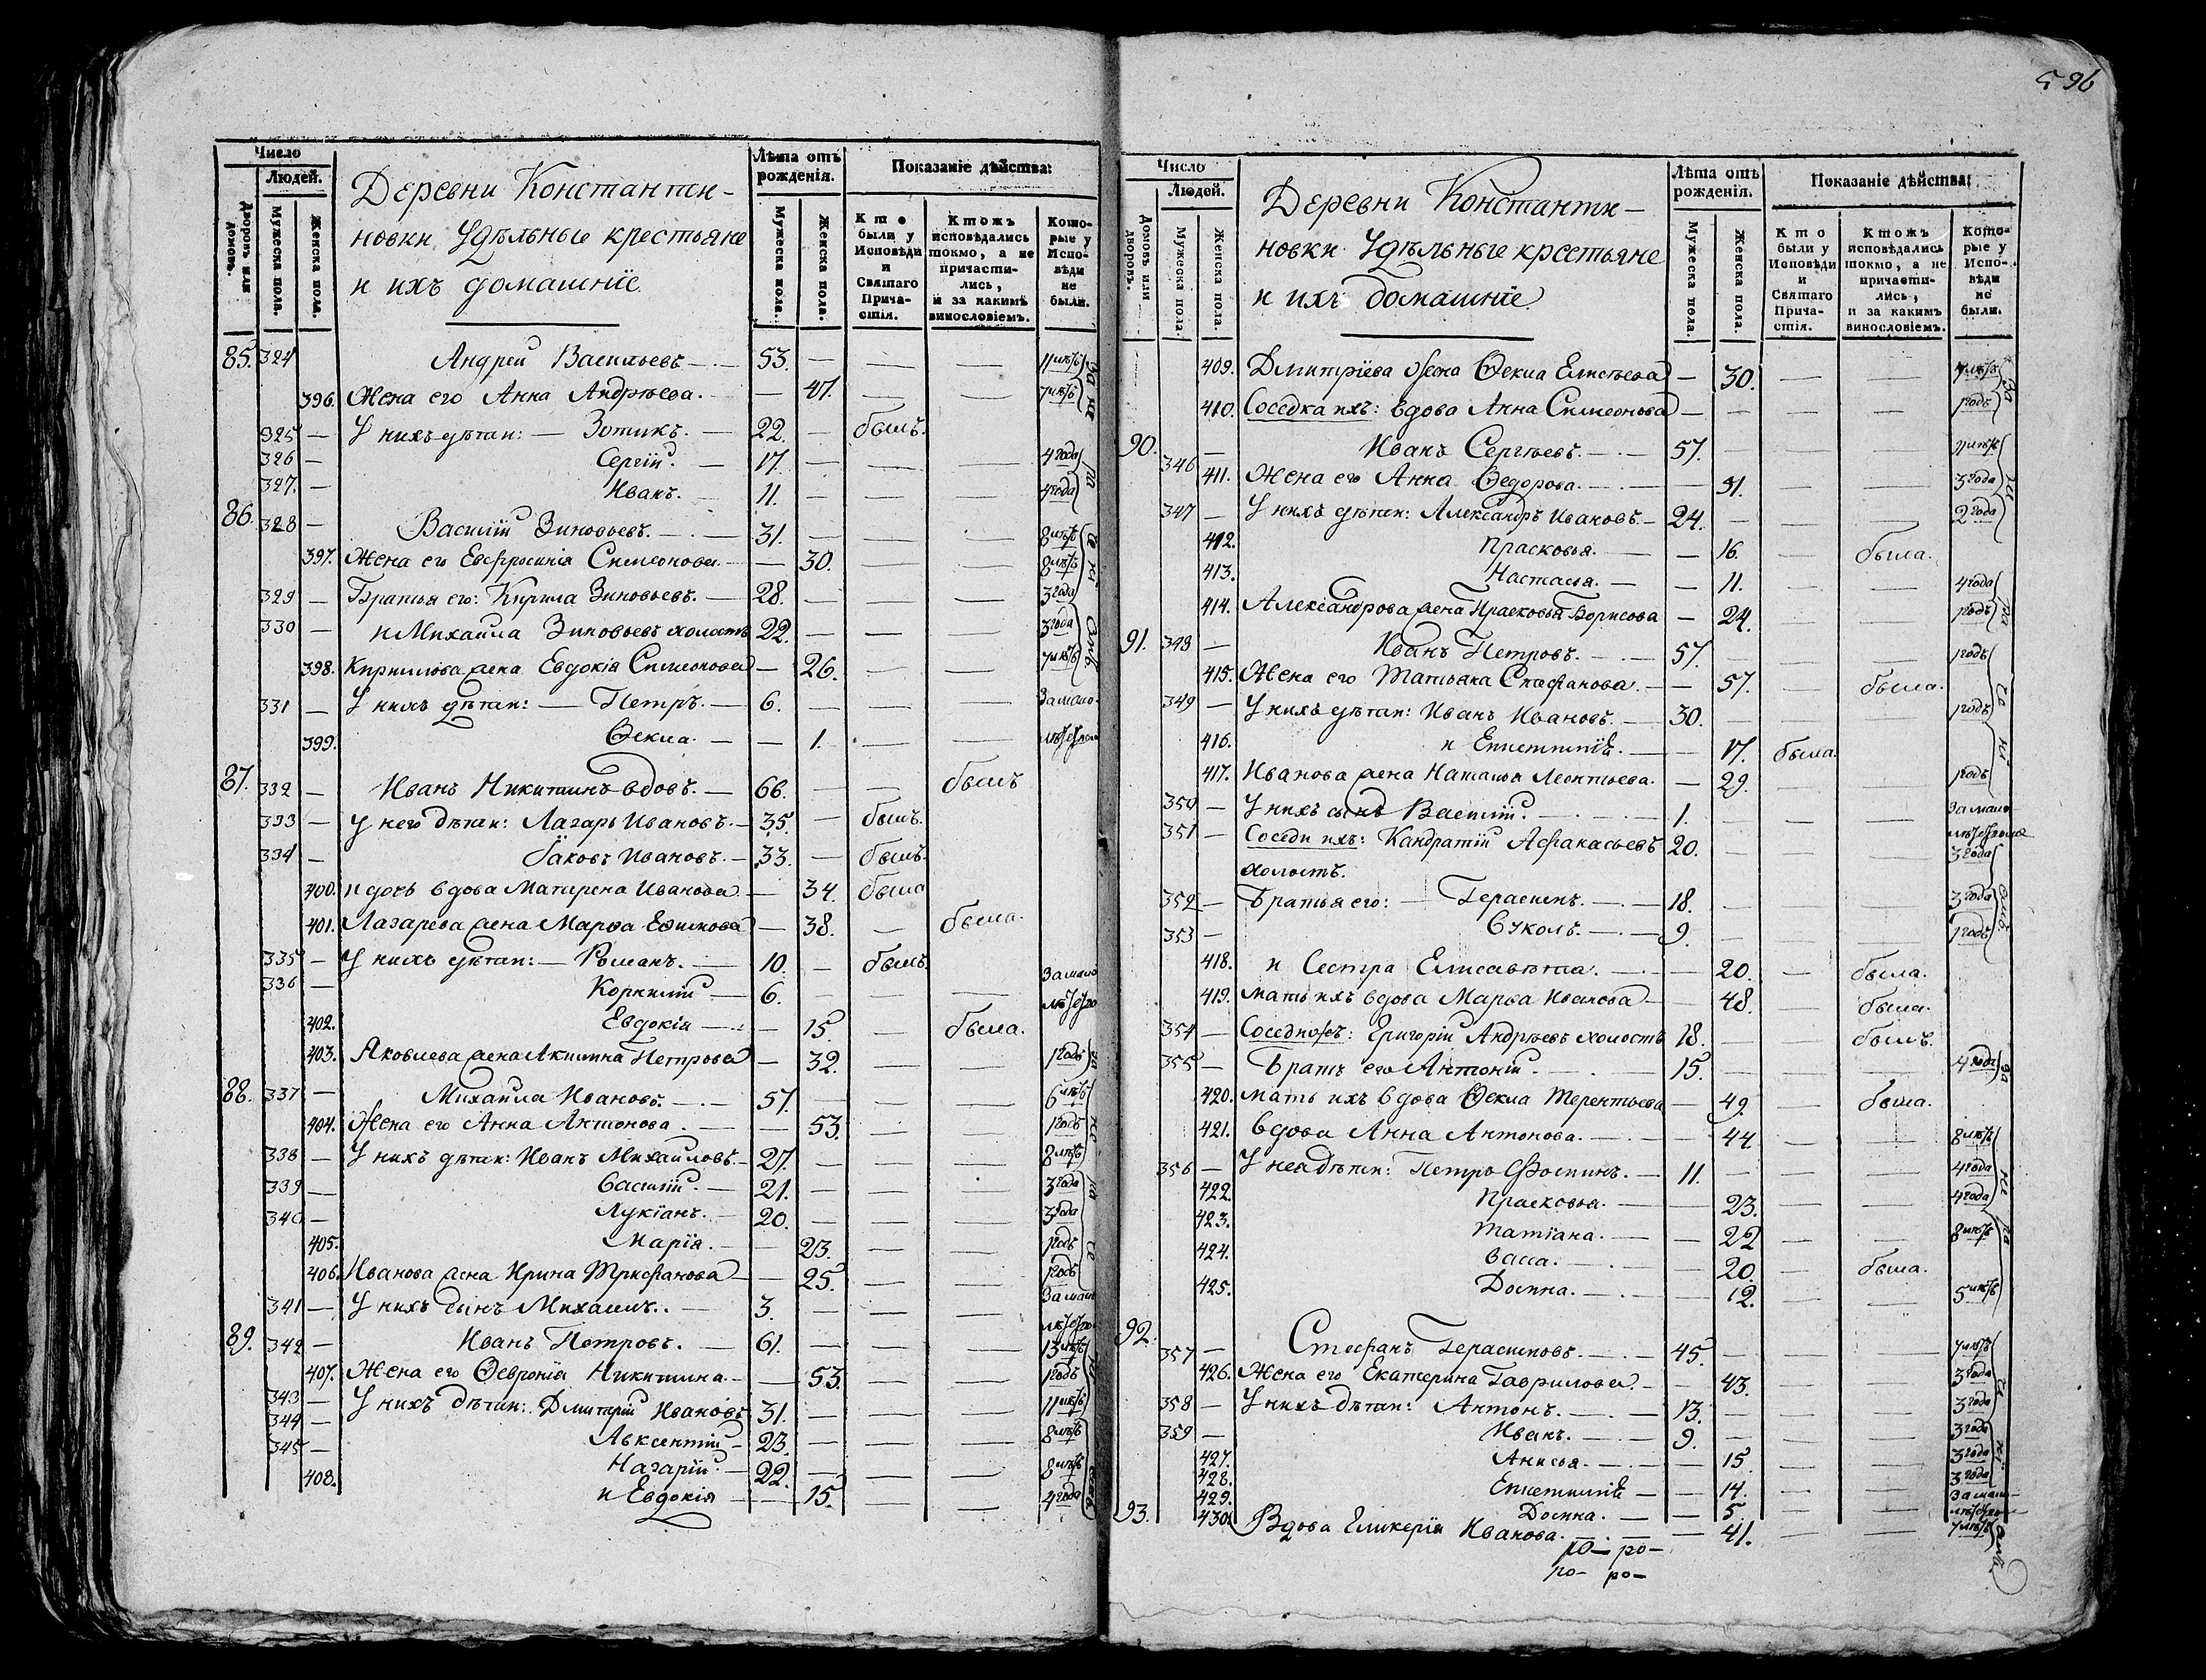 596
Число
Людей.
Дворовъ или домовъ.
Мужеска пола.
Женска пола.
Деревни Константи-
новки Удѣльные крестьяне
и ихъ домашніе
Лѣта отъ рожденія.
Мужеска пола.
Женска пола.
Показаніе дѣйства:
Кто были у Исповѣди и Святаго Прича-стія.
Ктожъ исповѣдались токмо, а не причасти-лись, и за какимъ винословіемъ.
Кото-рые у Испо-вѣди не были.
85. 324 Андрей Васильевъ. — 53. — — — 11 лѣтъ
396. Жена его Анна Андрѣева. — 47. — — 7 лѣтъ
325 — У нихъ дѣти: — Зотикъ. — 22. — былъ.
326 — Сергій. — 17. — — — 4 года
327. — Иванъ. — 11. — — — 4 года
86. 328 — Василій Зиновьевъ. — 31. — — — 8 лѣтъ
397. Жена его Евфросинія Симеонова — — 30. — — 8 лѣтъ
329 — Братья его: Кирила Зиновьевъ. — 28. — — — 3 года
330 — и Михаила Зиновьевъ холостъ 22. — — — 3 года
398. Кирилова жена Евдокія Симеонова — 26. — — 7 лѣтъ
331 — У нихъ дѣти: — Петръ. — 6. — — — За мало-
399. Ѳекла. — — 1. — — лѣтством
87. 332 — Иванъ Никитинъ вдовъ. — 66. — — былъ
333 — У него дѣти: Лазарь Ивановъ. — 35. — былъ.
334 — Іаковъ Ивановъ. — 33. — былъ.
400. и дочь вдова Матирена Иванова — 34. была
401. Лазарева жена Марѳа Еѳимова — 38. — была.
335 — У нихъ дѣти: — Романъ. — 10. — былъ.
336 — Корнилій — 6. — — — За мало
402. Евдокія — — 15. — была.
403. Яковлева жена Акилина Петрова — 32. — — 1 годъ
88. 337 — Михаила Ивановъ. — 57. — — — 6 лѣтъ
404. Жена его Анна Антонова. — — 53. — — 1 годъ
338 — У нихъ дѣти: Иванъ Михаиловъ. — 27. — — — 8 лѣтъ
339 — Василій. — 21. — — — 3 года
340 — Лукіанъ. — 20. — — — 3 года
405. Марія. — — 23. — — 1 годъ
406. Иванова жена Ирина Трифанова — — 25. — — 1 годъ
341 — У нихъ сынъ Михаилъ. — 3. — — — За мало
89. 342 — Иванъ Петровъ. — 61. — — — 13 лѣтъ
407. Жена его Ѳевронія Никитина — — 53. — — 1 годъ
343 — У нихъ дѣти: Дмитрій Ивановъ 31. — — — 11 лѣтъ
344 — Авксентій — 23. — — — 8 лѣтъ
345 — Назарій. — 22. — — — 8 лѣтъ
408. и Евдокія — — 15. — — 4 года
Число
Людей.
Домовъ или дворовъ.
Мужеска пола.
Женска пола.
Деревни Константи-
новки Удѣльные крестьяне
и ихъ домашніе
Лѣта отъ рожденія.
Мужеска пола.
Женска пола.
Показаніе дѣйства:
Кто были у Исповѣди и Святаго Прича-стія.
Ктожъ исповѣдались токмо, а не причасти-лись, и за какимъ винословіемъ.
Кото-рые у Испо-вѣди не были.
409. Дмитріева жена Ѳекла Елисѣева — 30. — — 7 лѣтъ
410. Соседка ихъ: вдова Анна Симеонова — — — — 1 годъ
90. 346 — Иванъ Сергѣевъ. — 57. — — — 11 лѣтъ
411. Жена его Анна Ѳедорова. — — 51. — — 3 года
347 — У нихъ дѣти: Александръ Ивановъ. — 24. — — — 2 года
412. Прасковья. — — 16. — была.
413. Настасья. — — 11. — — 4 года
414. Александрова жена Прасковья Борисова — 24. — — 1 годъ
91. 348 — Иванъ Петровъ. — 57. — — — 1 годъ
415. Жена его Татьяна Стафанова. — — 57. — была.
349 — У нихъ дѣти: Иванъ Ивановъ. — 30. — — — 1 годъ
416. и Епистиміѣ. — — 17. была.
417. Иванова жена Наталья Леонтьева. — 29. — — 1 годъ
350 — У нихъ сынъ Василій. — 1. — — — За мало
351 — Соседи ихъ: Кандратій Афанасьевъ 20. — — — 3 года
холостъ.
352 — Братья его: — Герасимъ. — 18. — — — 3 года
353 — Вуколъ. — 9. — — — 1 годъ
418. и Сестра Елисавѣта. — — 20. — была.
419. Мать ихъ вдова Марѳа Иванова — — 48. — была.
354 — Соседи ихъ: Григорій Андрѣевъ холостъ 18. — — былъ.
355 — Братъ его Антоній. — 15. — — — 4 года
420. Мать ихъ вдова Ѳекла Терентьева — 49. — была.
421. Вдова Анна Антонова. — — 44. — — 8 лѣтъ
356 — У нея дѣти: Петръ Фоминъ. — 11. — — — 4 года
422. Прасковья. — — 23. — — 4 года
423. Татіана. — — 22 — — 8 лѣтъ
424. Васса. — — 20. — была.
425. Домна. — — 12. — — 5 лѣтъ
92. 357 — Стефанъ Герасимовъ. — 45. — — — 7 лѣтъ
426. Жена его Екатерина Гаврилова. — — 43. — — 3 года
358 — У нихъ дѣти: Антонъ. — 13. — — — 3 года
359 — Иванъ. — 9. — — — 3 года
427. Анисья. — — 15. — — 3 года
428. Епистиміѣ — — 14. — — 3 года
429. Домна. — — 5. — — За мало-
93. 430. Вдова Гликерія Иванова. — — 41. — — 7 лѣтъ